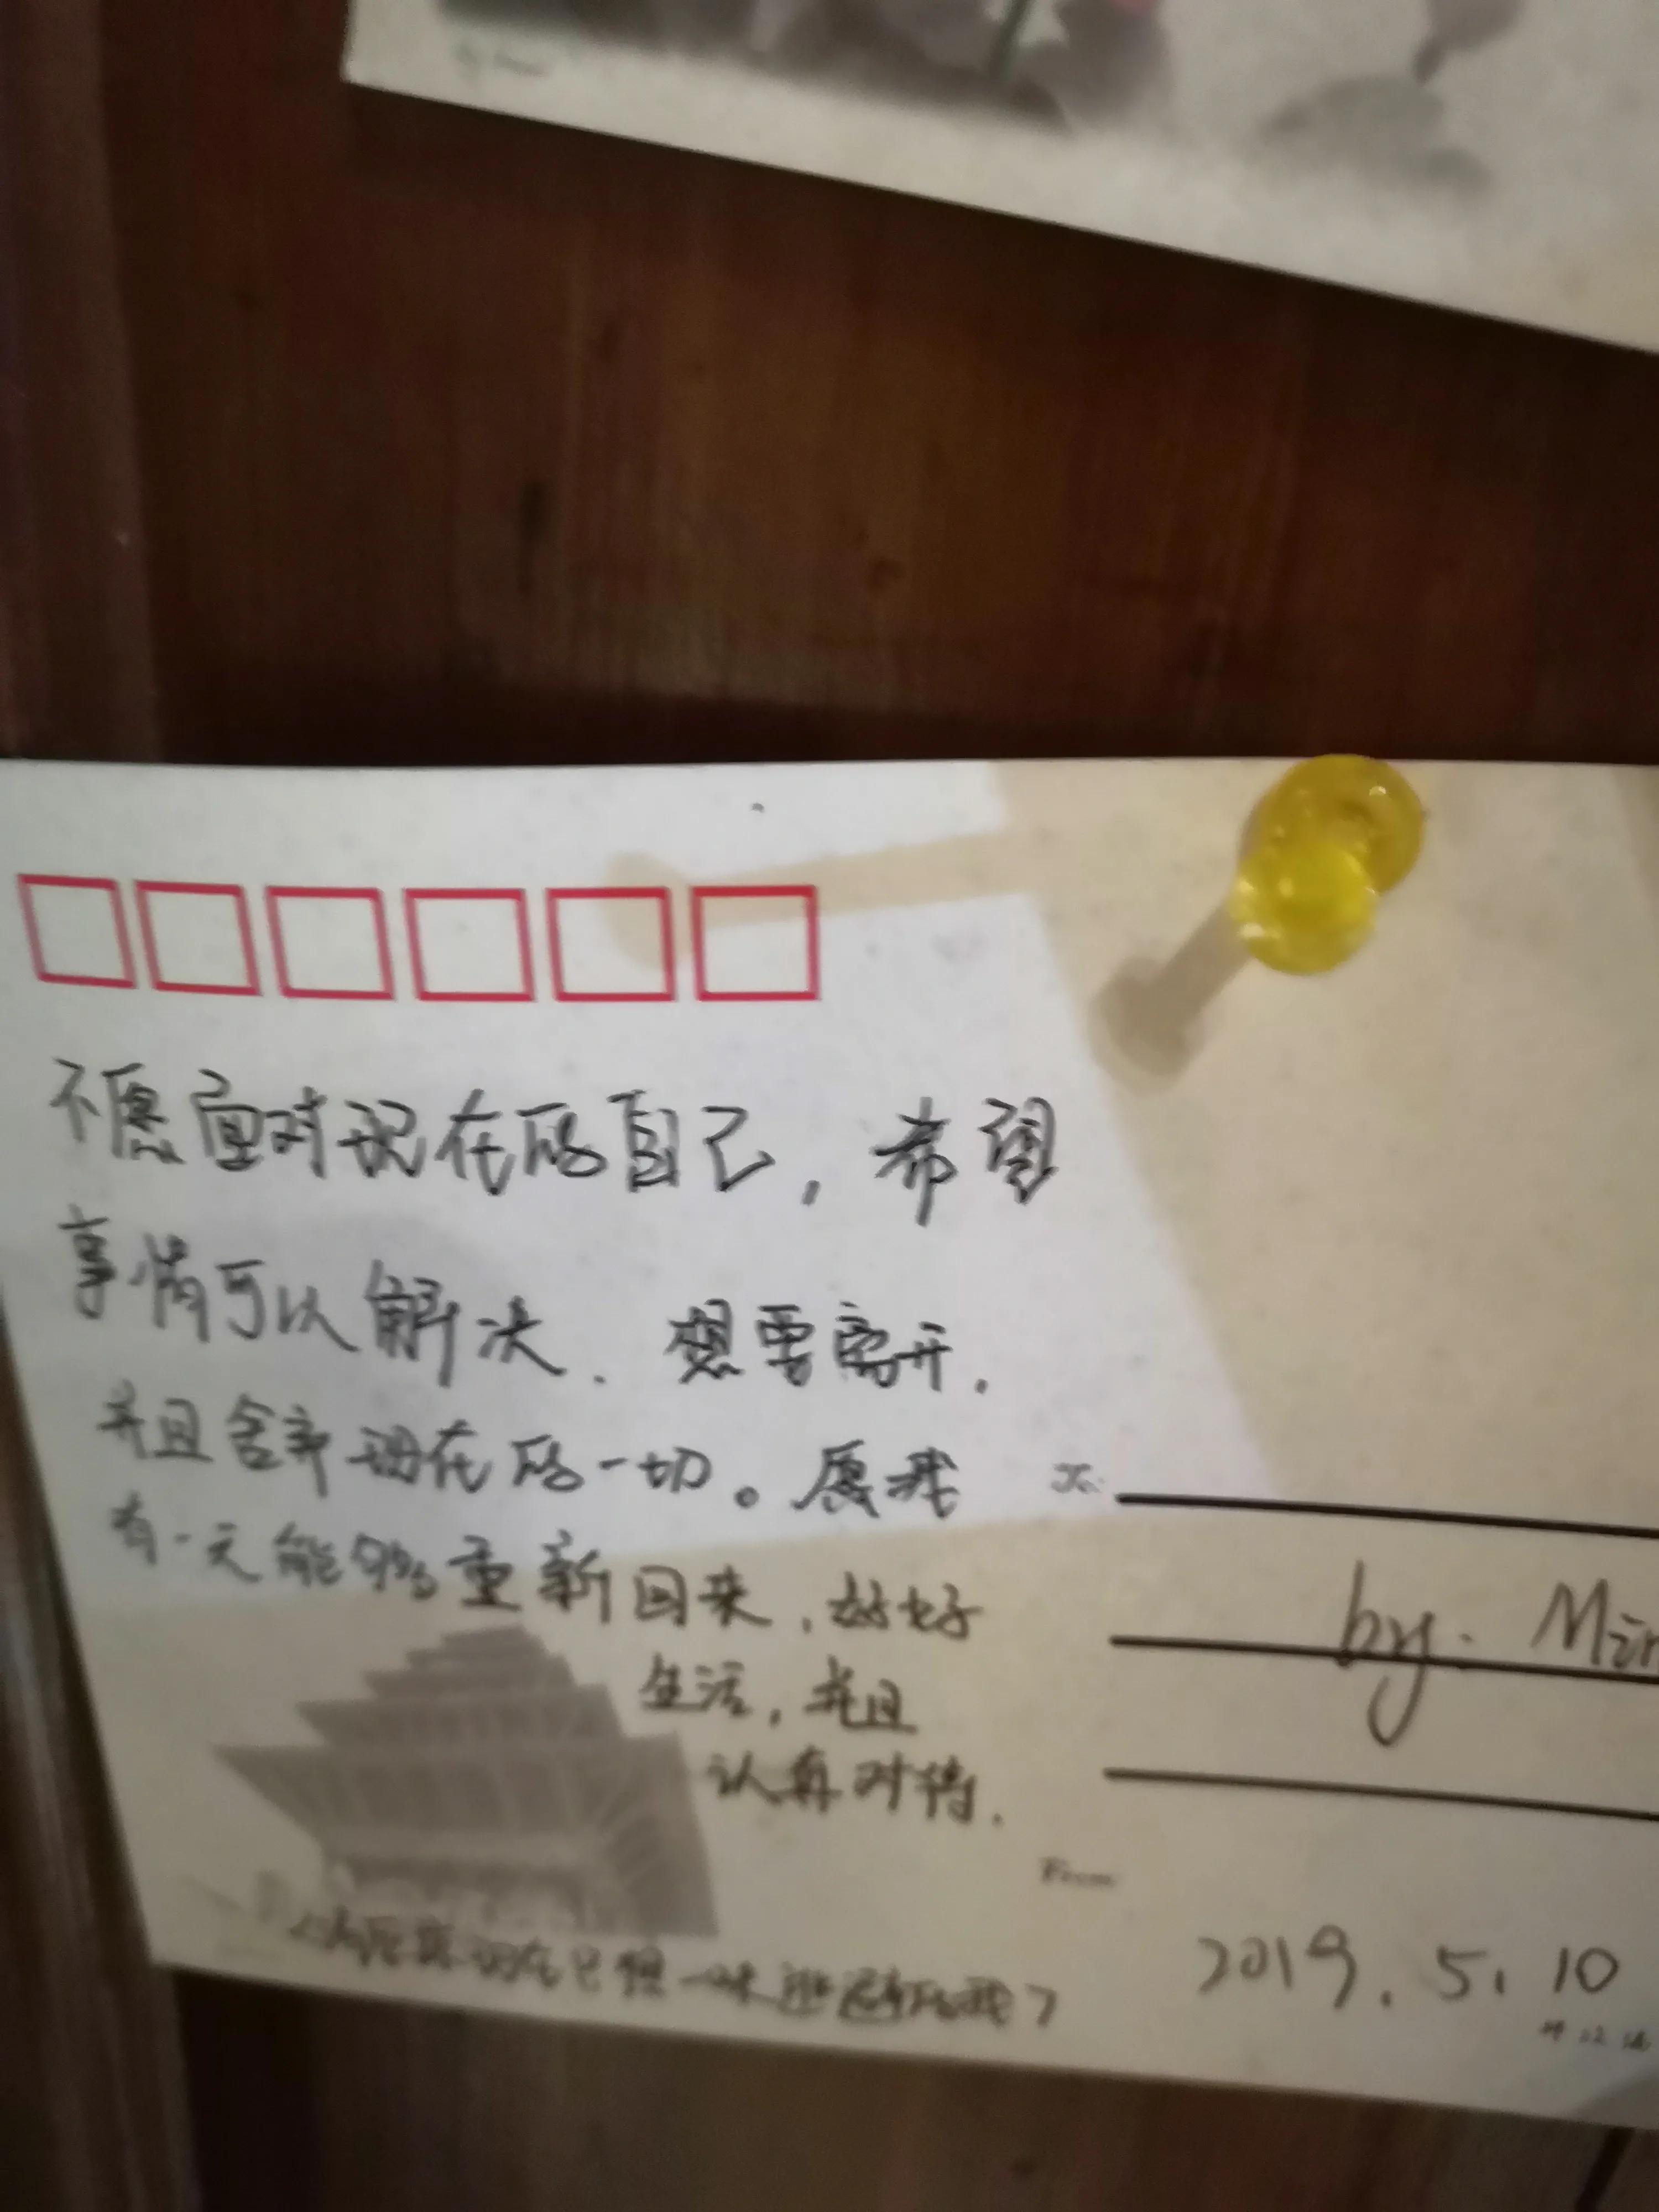 不愿面对现在的自己，希望
事情可以解决、想要离开，
并且舍弃现在的一切。愿我
有一天能够重新回来，好好
生活，并且
认真对待．
To:
by. Min
From:
现在只想一味逃避的我
2019.5.10